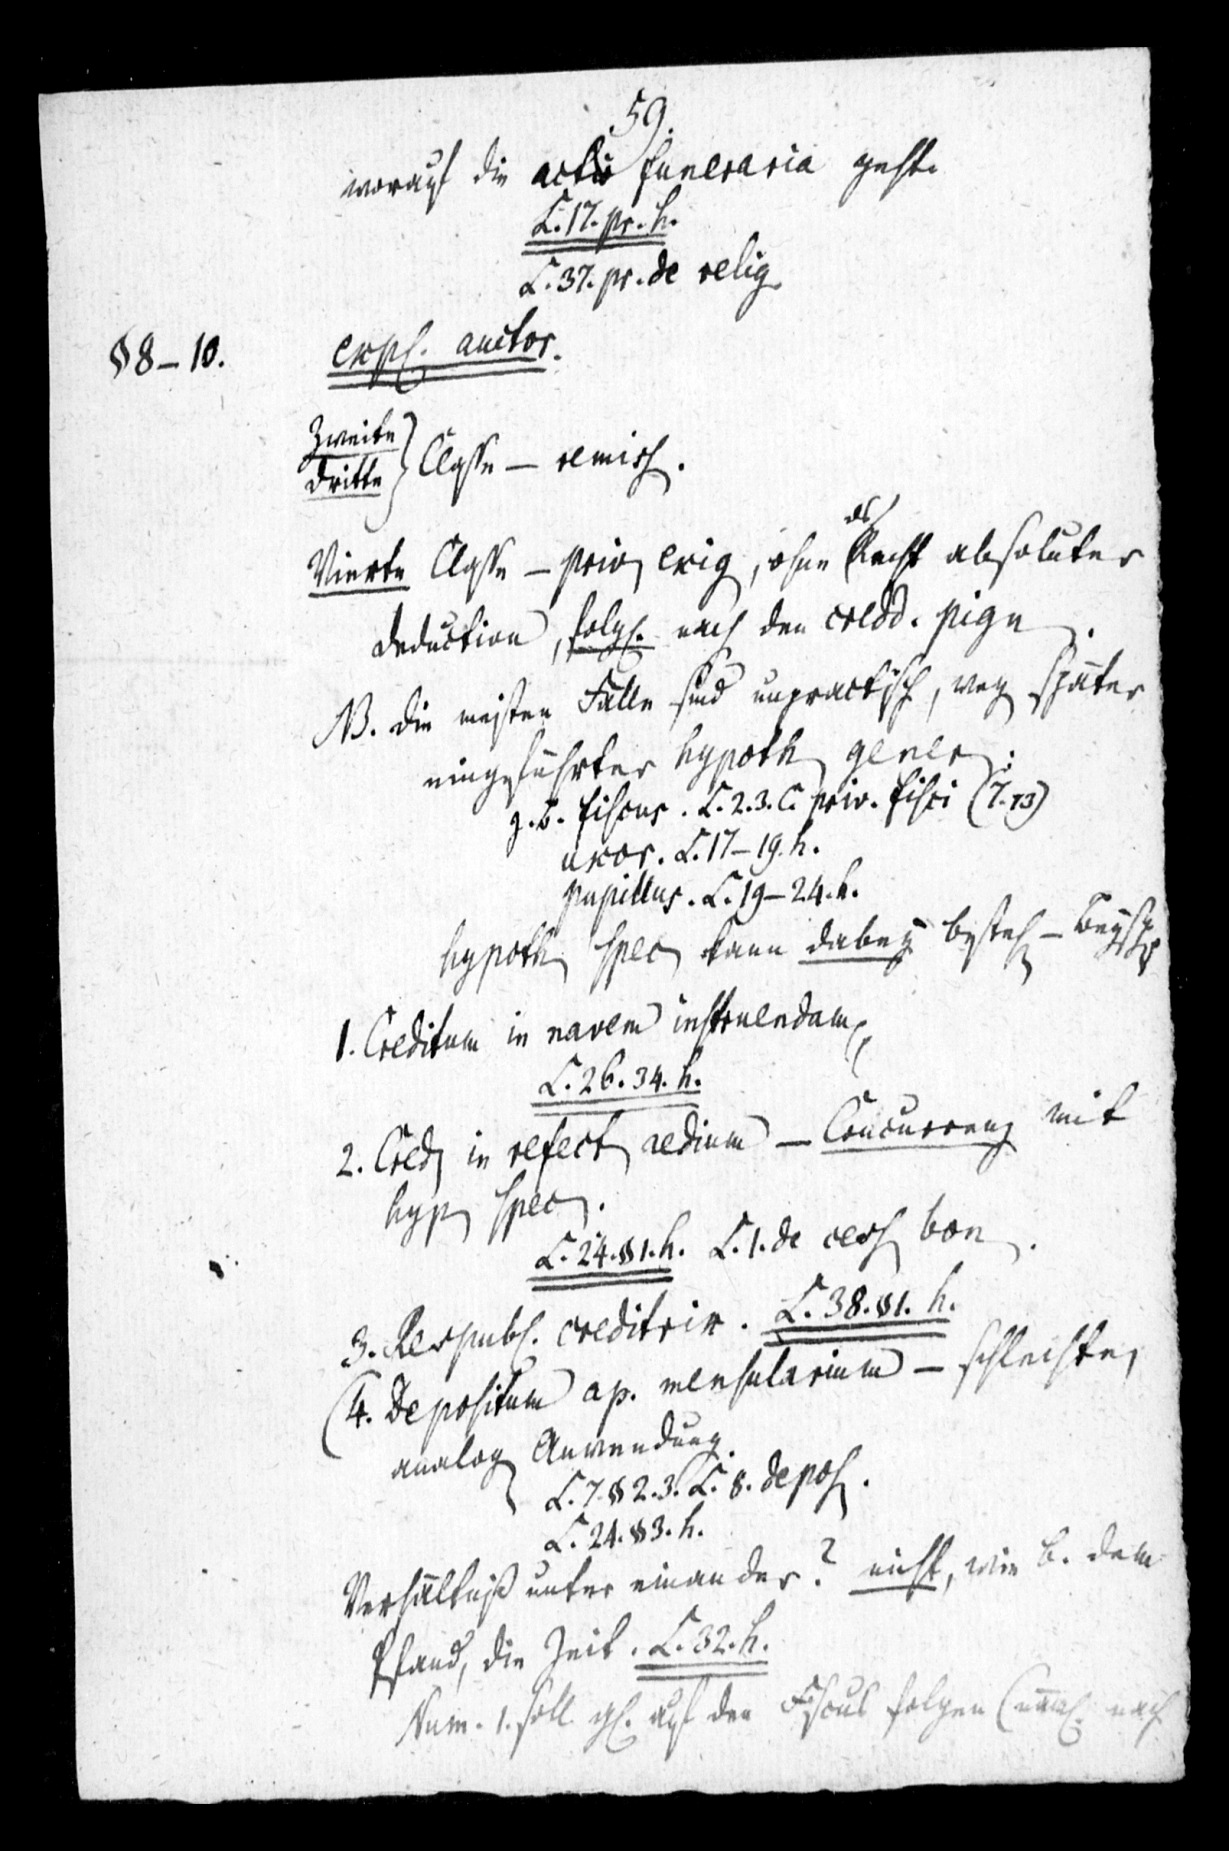 59.
worauf die actio funeraria geht.
L. 17. pr. h.
L. 37. pr. de relig
§ 8 – 10. expl. auctor.
Zweite
Dritte } Classe – remiss.
Vierte Classe – priv exig, ohne das Recht absoluter
deduction, folgl. nach den credd. pign.
NB. die meisten Fälle sind unpractisch, weg später
eingeführter hypoth gener:
z. B. fiscus. L. 2. 3. C. priv. fisci (7. 73)
uxor. L. 17 – 19. h.
pupillus. L. 19 – 24. h.
hypoth spec kann dabey besteh –
1. Creditum in navem instruendam
L. 26. 34. h.
2. Cred in refect aedium – Concurrenz mit
hyp spec.
L. 24. § 1. h. L. 1. de cess bon.
3. Respubl. creditrix. L. 38. § 1. h.
(4. Depositum ap. mensularium – schlechte,
analog Anwendung.
L. 7. § 2. 3. L. 8. depos.
L. 24. § 3. h.
Verhältniß unter einander? nicht, wie b. dem
Pfand, die Zeit. L. 32. h.
Num. 1. soll gl. auf den Fiscus folgen ( nach